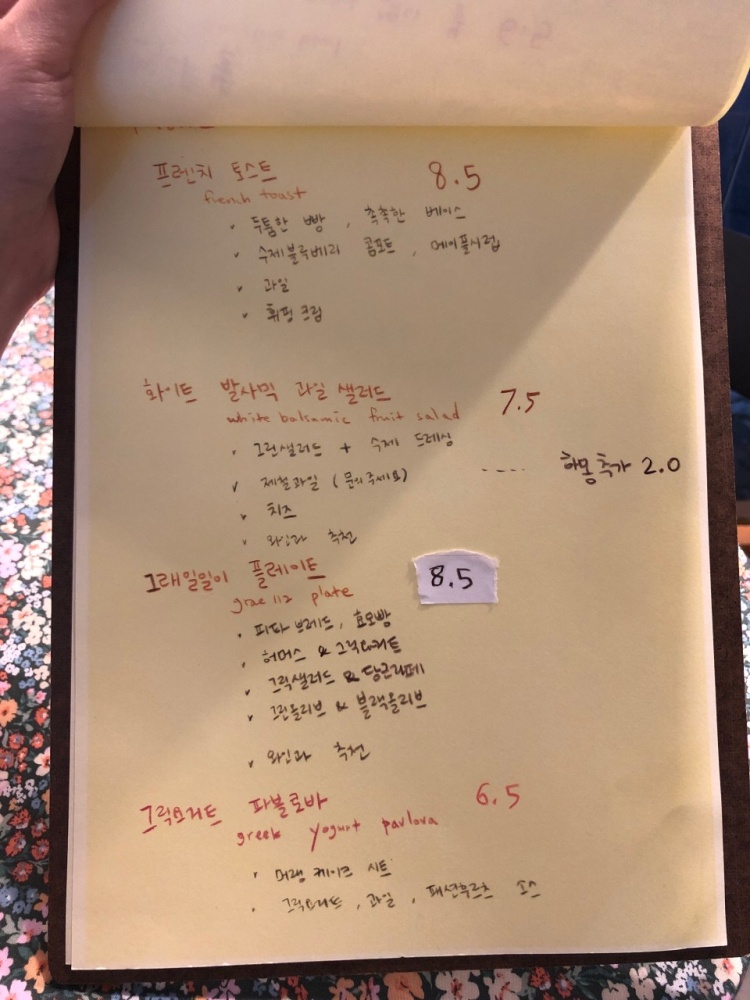 프렌치 토스트 8.5
french toast
두툼한 빵, 촉촉한 베이스
수제블루베리 콤포트, 메이플시럽
과일
휘핑크림
화이트 발사믹 과일 샐러드 7.5
white balsamic fruit salad
그린샐러드 + 수제 드레싱
제철과일 (문의주세요) ---- 하몽추가 2.0
치즈
와인과 추천
그래일일이 플레이트 8.5
grae112 plate
피타 브레드, 효모빵
허머스 & 그릭요거트
그릭샐러드 & 당근라페
그린올리브 & 블랙올리브
와인과 추천
그릭요거트 파블로바 6.5
greek yogurt pavlova
머랭 케이크 시트
그릭요거트, 과일, 패션후르츠 소스